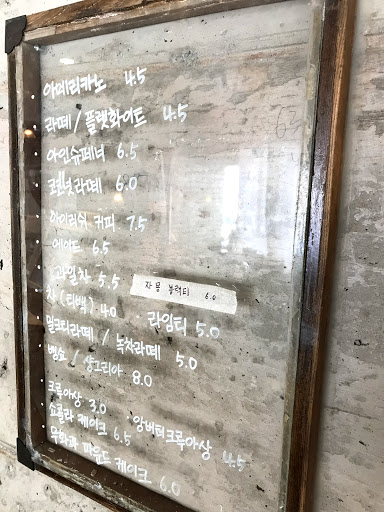 아메리카노 4.5
라떼 / 플랫화이트 4.5
아인슈페너 6.5
코코넛라떼 6.0
아이리쉬 커피 7.5
에이드 6.5
과일차 5.5
자몽 블랙티 6.0
차 (티백) 4.0 · 라임티 5.0
밀크티라떼 / 녹차라떼 5.0
뱅쇼 / 샹그리아 8.0
크루아상 3.0 · 앙버터크루아상 4.5
쇼콜라 케이크 6.5
무화과 파운드 케이크 6.0